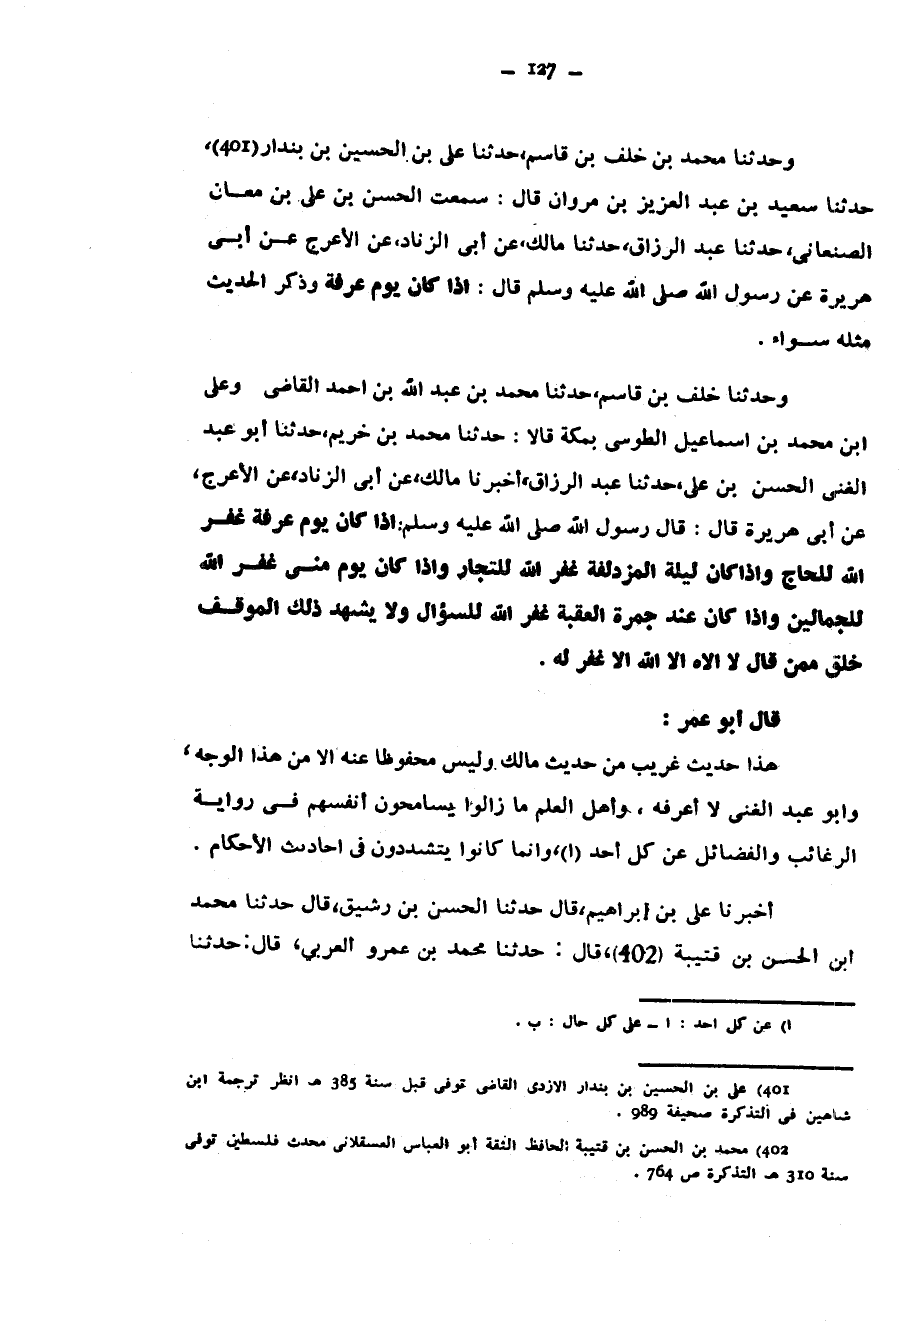 — 127 —
وحدثنا محمد بن خلف بن قاسم،حدثنا على بن الحسين بن بندار(401)،
حدثنا سعيد بن عبد العزيز بن مروان قال : سمعت الحسن بن على بن معـان
الصنعانى،حدثنا عبد الرزاق،حدثنا مالك،عن أبى الزناد،عن الأعرج عـن أبـى
هريرة عن رسول الله صلى الله عليه وسلم قال : اذا كان يوم عرفة وذكر الحديث
مثله سـواء .
وحدثنا خلف بن قاسم،حدثنا محمد بن عبد الله بن احمد القاضى وعلى
ابن محمد بن اسماعيل الطوسى بمكة قالا : حدثنا محمد بن خريم،حدثنا أبو عبد
الغنى الحسن بن على،حدثنا عبد الرزاق،أخبرنا مالك،عن أبى الزناد،عن الأعرج،
عن أبى هريرة قال : قال رسول الله صلى الله عليه وسلم:اذا كان يوم عرفة غفـر
الله للحاج واذاكان ليلة المزدلفة غفر الله للتجار واذا كان يوم منـى غفـر الله
للجمالين واذا كان عند جمرة العقبة غفر الله للسؤال ولا يشهد ذلك الموقـف
خلق ممن قال لا الاه الا الله الا غفر له .
قال أبو عمر :
هذا حديث غريب من حديث مالك وليس محفوظا عنه الا من هذا الوجه،
وابو عبد الغنى لا أعرفه ، وأهل العلم ما زالوا يسامحون أنفسهم فـى روايـة
الرغائب والفضائل عن كل أحد (ا)،وانما كانوا يتشددون فى احاديث الأحكام .
أخبرنا على بن إبراهيم،قال حدثنا الحسن بن رشيق،قال حدثنا محمد
ابن الحسن بن قتيبة (402)،قال : حدثنا محمد بن عمرو العربي، قال:حدثنا
ا) عن كل احد : ا — على كل حال : ب .
401) على بن الحسين بن بندار الازدى القاضى توفى قبل سنة 385 هـ انظر ترجمة ابن
شاهين فى التذكرة صحيفة 989 .
402) محمد بن الحسن بن قتيبة الحافظ الثقة أبو العباس العسقلانى محدث فلسطين توفى
سنة 310 هـ التذكرة ص 764 .